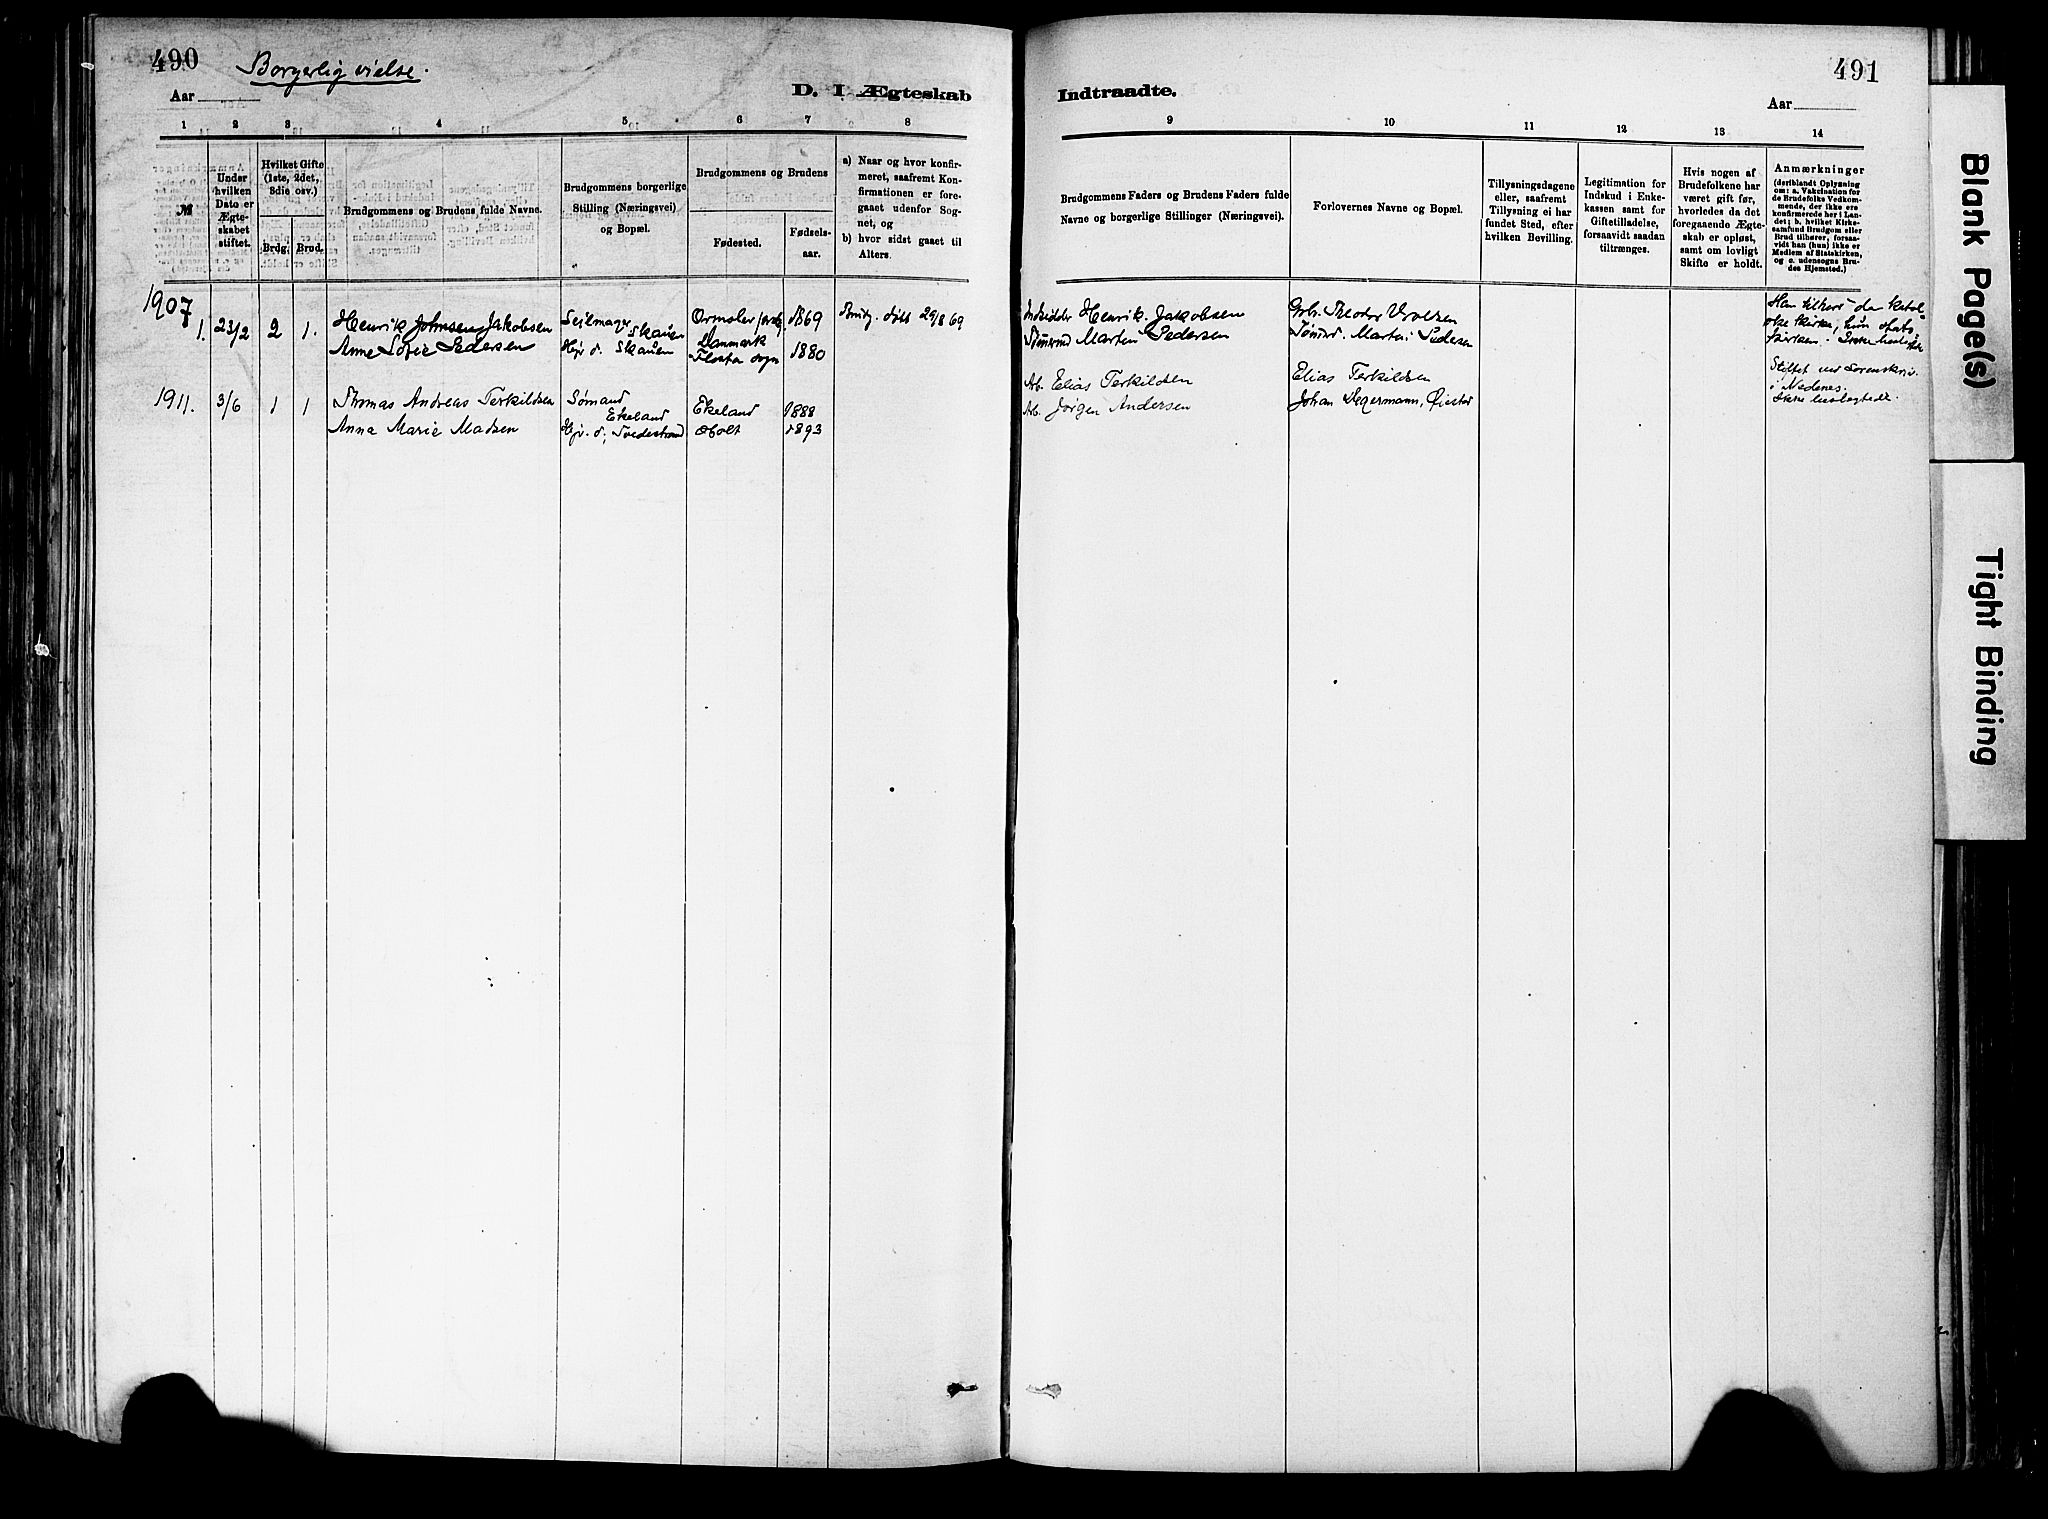 490
Borgerlig vielse.
Aar
D. I Ægteskab
1 2 3 4 5 6 7 8
№
Under hvilken Dato er Ægteskabet stiftet.
Hvilket Gifte (1ste, 2det, 3die osv.)
Brdg. Brud.
Brudgommens og Brudens fulde Navne.
Brudgommens borgerlige Stilling (Næringsvei) og Bopæl.
Brudgommens og Brudens
Fødested.
Fødsels-aar.
a) Naar og hvor konfir-
meret, saafremt Kon-
firmationen er fore-
gaaet udenfor Sog-
net, og
b) hvor sidst gaaet til
Alters.
1907
1. 23/2 2 1. Henrik Johnsen Jakobsen Seilmager Skauen Ormslev 1869 29/8 69
Anne Sofie Pedersen Hjv. d. Skauen Danmark
Flosta sogn 1880
1911. 3/6 1 1 Thomas Andreas Terkildsen Sømand Ekeland Ekeland 1888
Anna Marie Madsen Hjv. d. Tvedestrand Holt 1893
491
Indtraadte.
Aar
9 10 11 12 13 14
Brudgommens Faders og Brudens Faders fulde
Navne og borgerlige Stillinger (Næringsvei).
Forlovernes Navne og Bopæl.
Tillysningsdagene
eller, saafremt
Tillysning ei har
fundet Sted, efter
hvilken Bevilling.
Legitimation for
Indskud i Enke-
kassen samt for
Giftetilladelse,
forsaavidt saadan
tiltrænges.
Hvis nogen af
Brudefolkene har
været gift før,
hvorledes da det
foregaaende Ægte-
skab er opløst,
samt om lovligt
Skifte er holdt.
Anmærkninger
(deriblandt Oplysning
om: a. Vakcination for
de Brudefolks Vedkom-
mende, der ikke ere
konfirmerede her i Lan-
det; b. hvilket Kirke-
samfund Brudgom eller
Brud tilhører, forsaa-
vidt han (hun) ikke er
Medlem af Statskirken,
og c. udensogns Bru-
des Hjemsted.)
Indsidder Henrik Jakobsen Grb. Theodor
Tømmermd Marten Pedersen Tømmd. Marten Pedersen
Han tilhører den katol
ske kirke, hun stats
kirken. Ikke beslægtede
Arb. Elias Terkildsen Elias Terkildsen
Arb. Jørgen Andersen Johan Segermann, Øiestad
Stiftet ved Sorenskriv.
i Nedenes.
Ikke beslægtede.
Blank Page(s)
Tight Binding